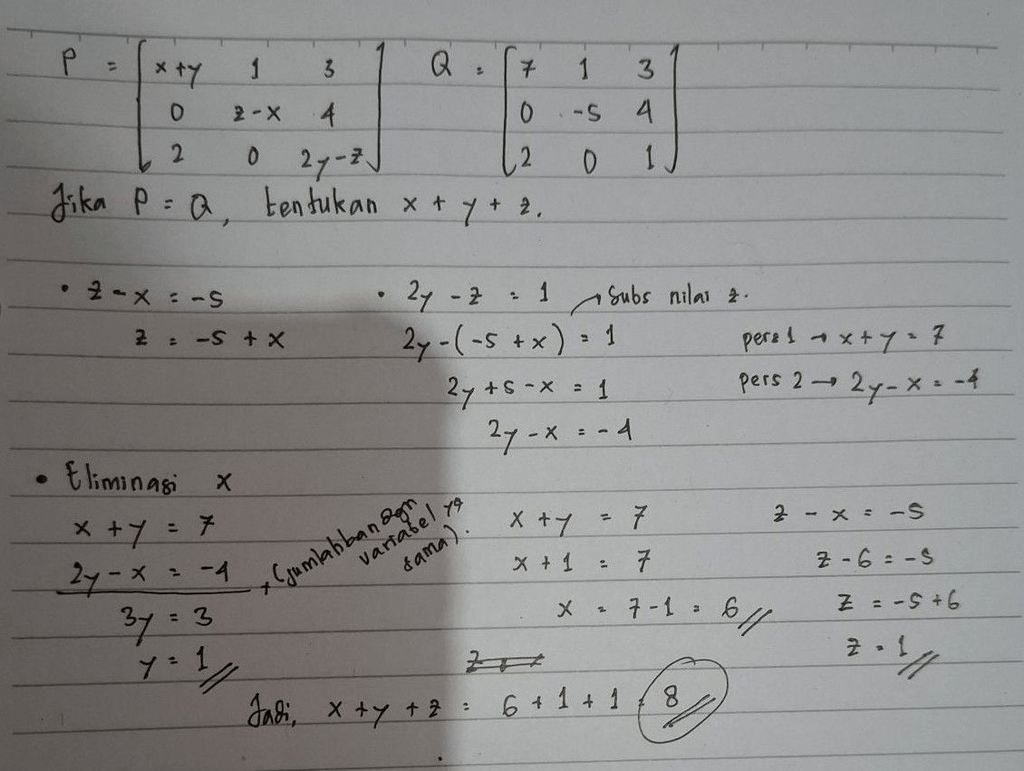 P = [ x+y 1 3 ] Q = [ 7 1 3 ]
0 z-x 4 0 -5 4
2 0 2y-z 2 0 1
Jika P = Q, tentukan x + y + z.
• z - x = -5
z = -5 + x
• 2y - z = 1 → Subs nilai z.
2y - (-5 + x) = 1
2y + 5 - x = 1
2y - x = -4
pers 1 → x + y = 7
pers 2 → 2y - x = -4
• Eliminasi x
x + y = 7
2y - x = -4 +
3y = 3
y = 1 //
(jumlahkan dgn
variabel yg
sama).
x + y = 7
x + 1 = 7
x = 7 - 1 = 6 //
z - x = -5
z - 6 = -5
z = -5 + 6
z = 1 //
Jadi, x + y + z = 6 + 1 + 1 = 8 //